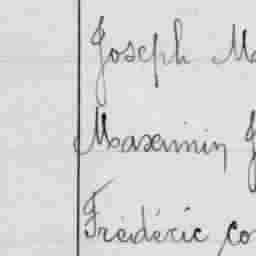 Joseph Ma
Maxemin J
Frédéric Co